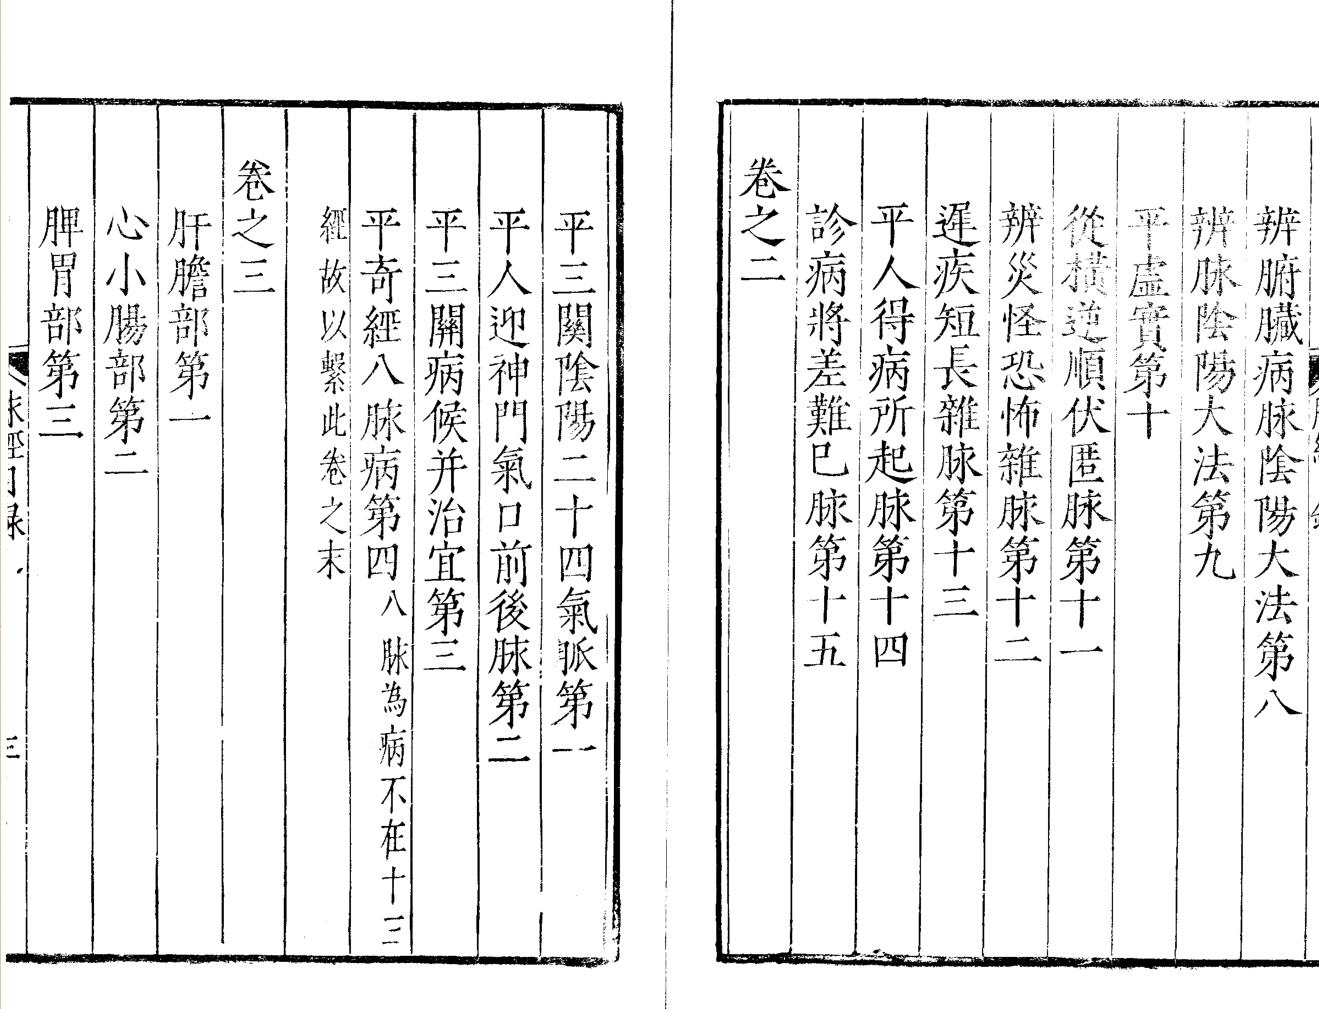 辨腑臟病脉陰陽大法第八
辨脉陰陽大法第九
平虛實第十
從橫逆順伏匿脉第十一
辨災怪恐怖雜脉第十二
遲疾短長雜脉第十三
平人得病所起脉第十四
診病將差難已脉第十五
卷之二
平三關陰陽二十四氣脈第一
平人迎神門氣口前後脉第二
平三關病候并治宜第三
平奇經八脉病第四八脉為病不在十二
經故以繫此卷之末
卷之三
肝膽部第一
心小腸部第二
脾胃部第三
脉經目錄
三